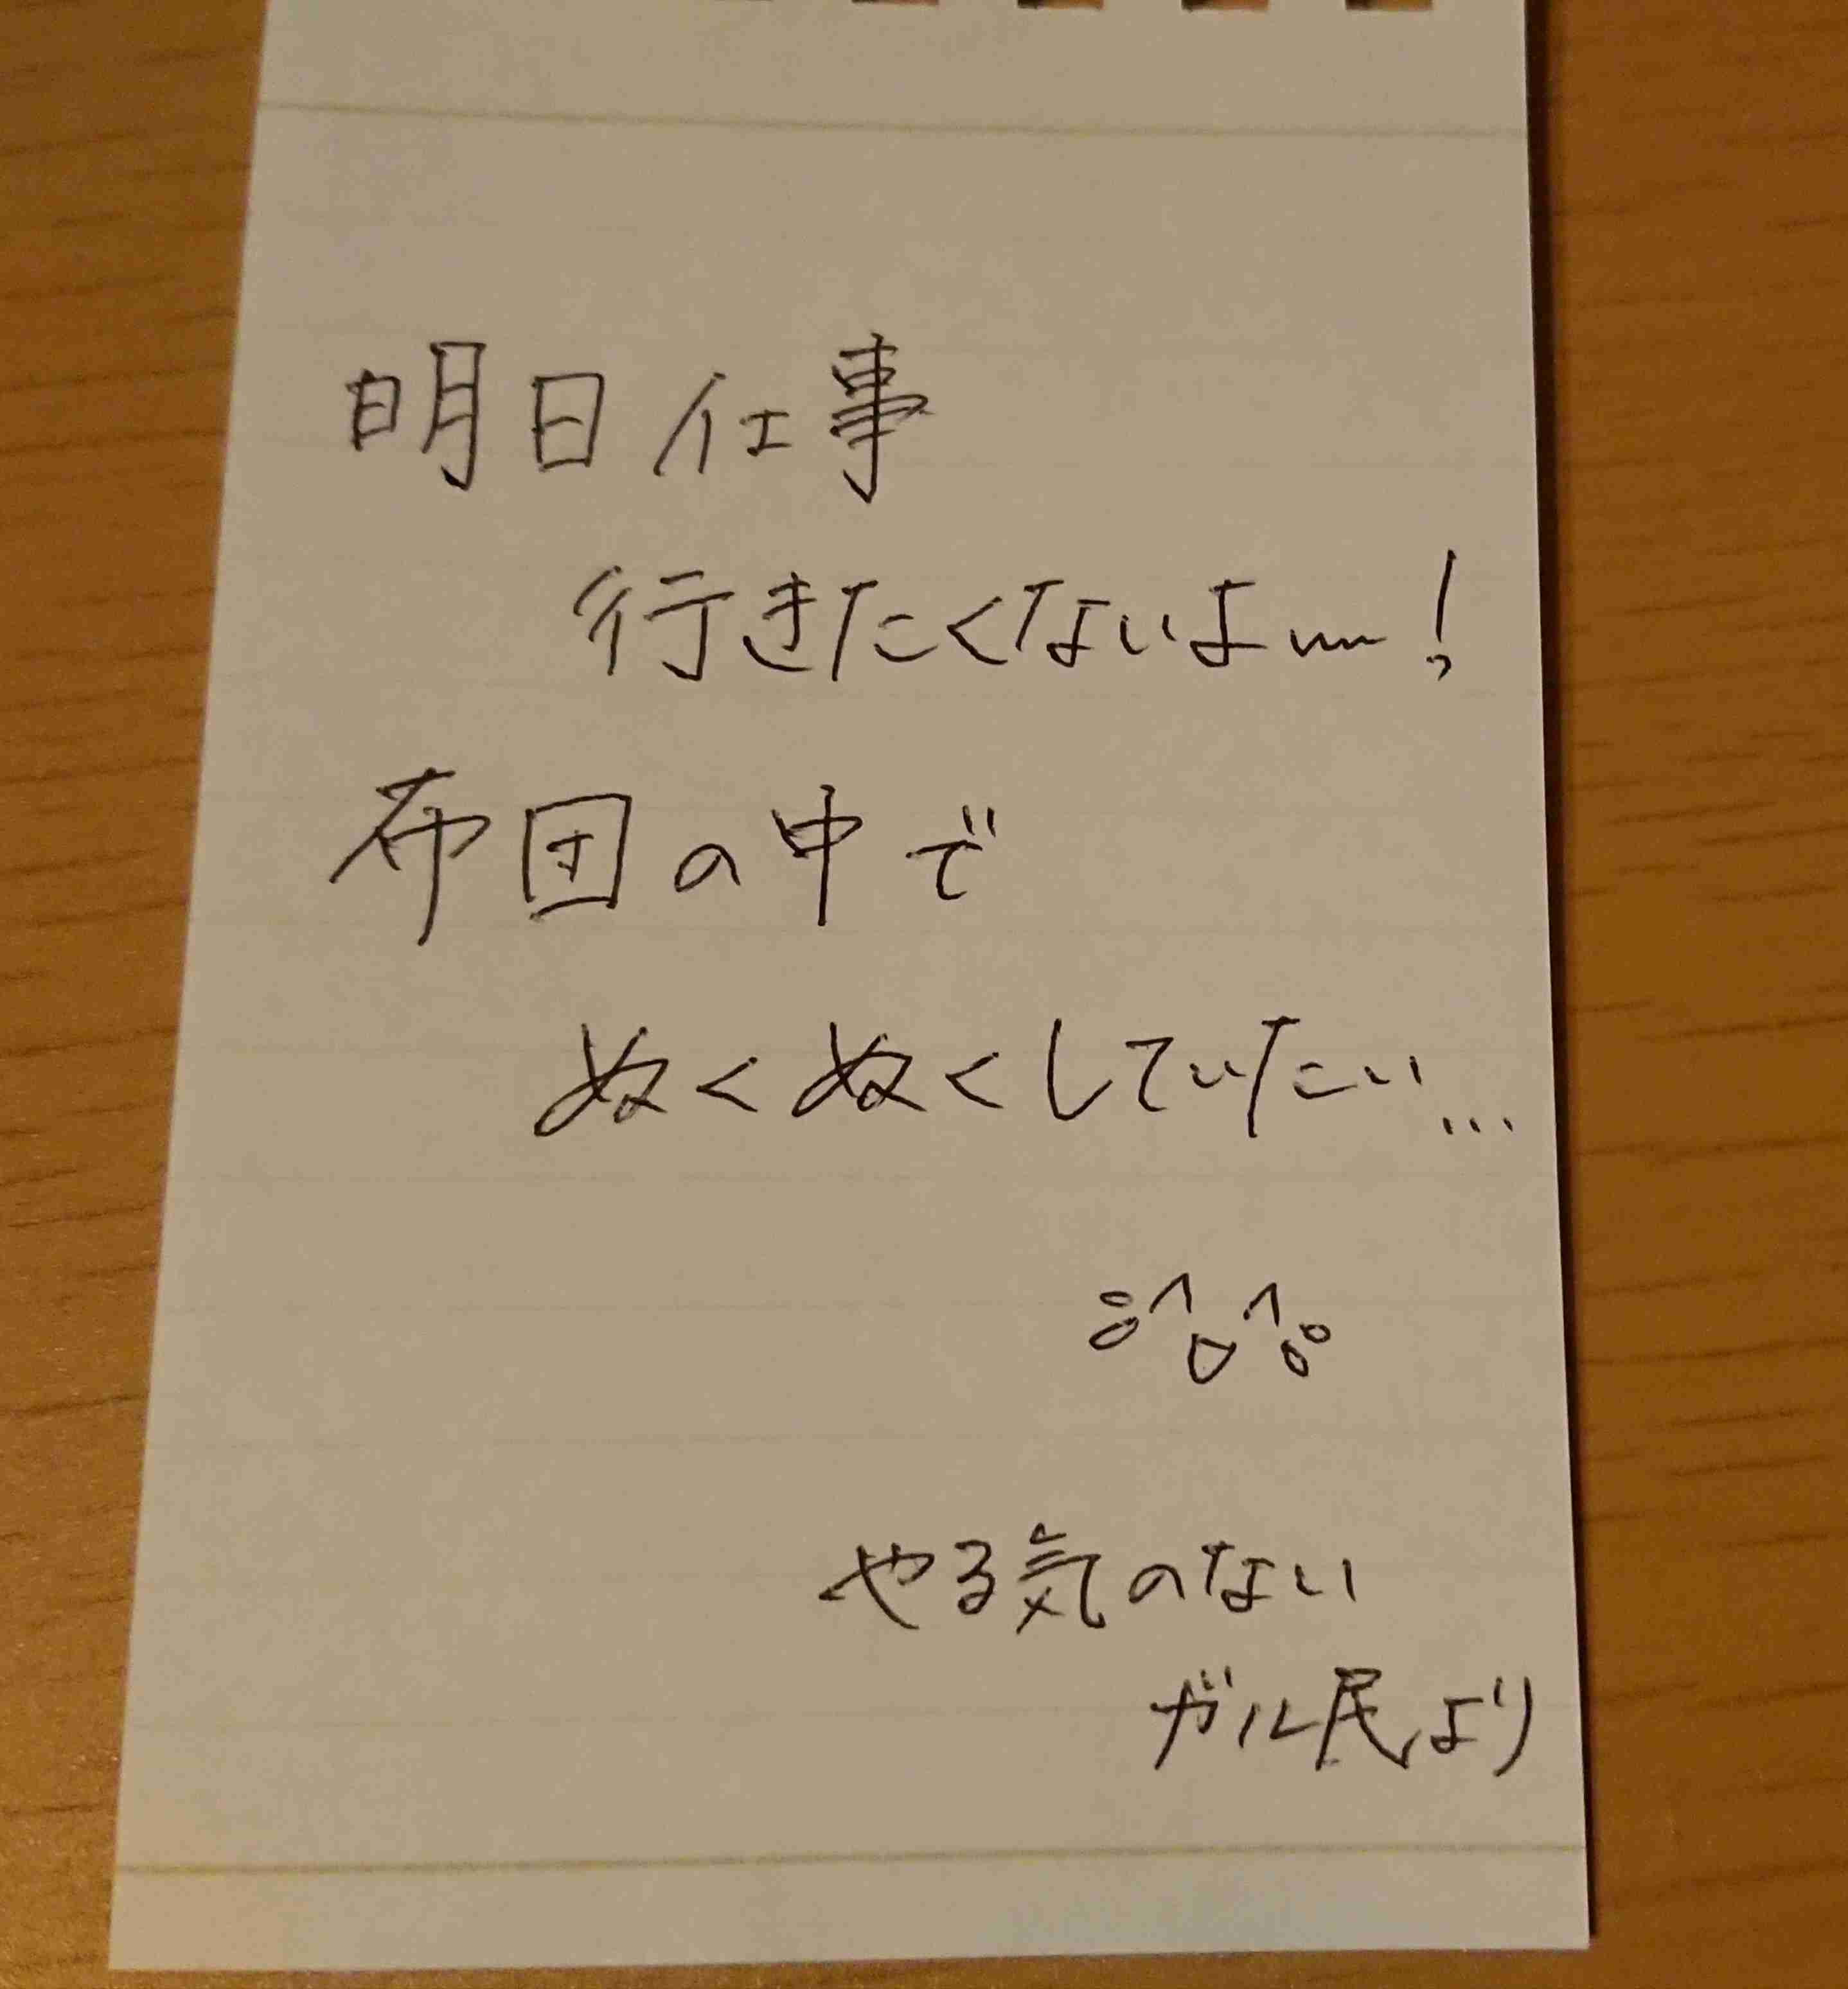 明日仕事
行きたくないよ〜!
布団の中で
ぬくぬくしていたい...
やる気のない
ガル民より